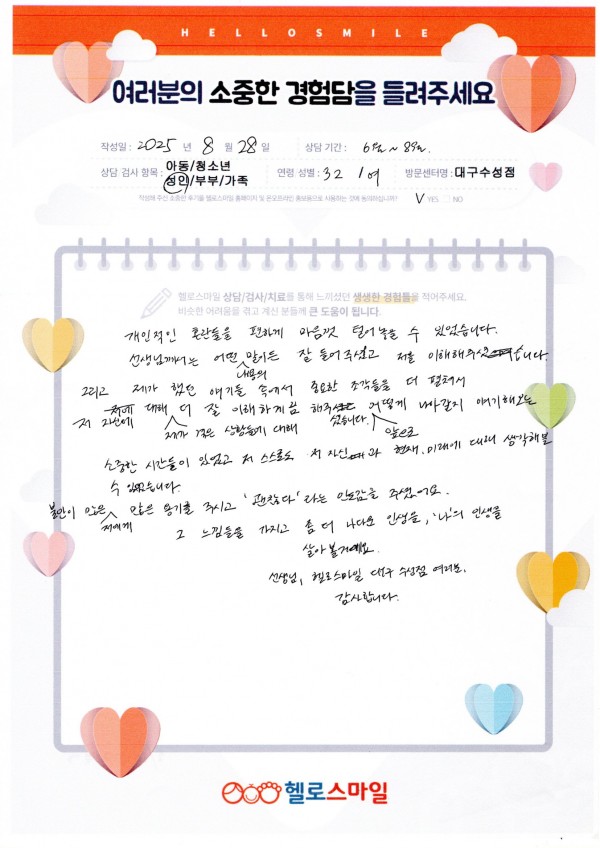 HELLOSMILE
여러분의 소중한 경험담을 들려주세요
작성일 : 2025 년 8 월 28 일 상담 기간 : 6월 ~ 8월.
상담 검사 항목 : 아동/청소년
성인/부부/가족 연령 성별 : 32 / 여 방문센터명 : 대구수성점
작성해 주신 소중한 후기를 헬로스마일 홈페이지 및 온오프라인 홍보용으로 사용하는 것에 동의하십니까? V YES NO
헬로스마일 상담/검사/치료를 통해 느끼셨던 생생한 경험들을 적어주세요.
비슷한 어려움을 겪고 계신 분들께 큰 도움이 됩니다.
개인적인 혼란들을 편하게 마음껏 털어놓을 수 있었습니다.
선생님께서는 어떤 내용의 말이든 잘 들어주셨고 저를 이해해주셨습니다.
그리고 제가 했던 얘기들 속에서 중요한 조각들을 더 펼쳐서
저 자신에 대해 더 잘 이해하게끔 해주셨습니다. 앞으로 어떻게 나아갈지 얘기해보는
제가 겪은 상황들에 대해
소중한 시간들이 있었고 저 스스로도 저 자신과 현재, 미래에 대해 생각해볼
수 있었습니다.
불안이 많은 저에게 많은 용기를 주시고 '괜찮다' 라는 안도감을 주셨어요.
그 느낌들을 가지고 좀 더 나다운 인생을, '나'의 인생을
살아 볼거예요.
선생님, 헬로스마일 대구 수성점 여러분,
감사합니다.
헬로스마일